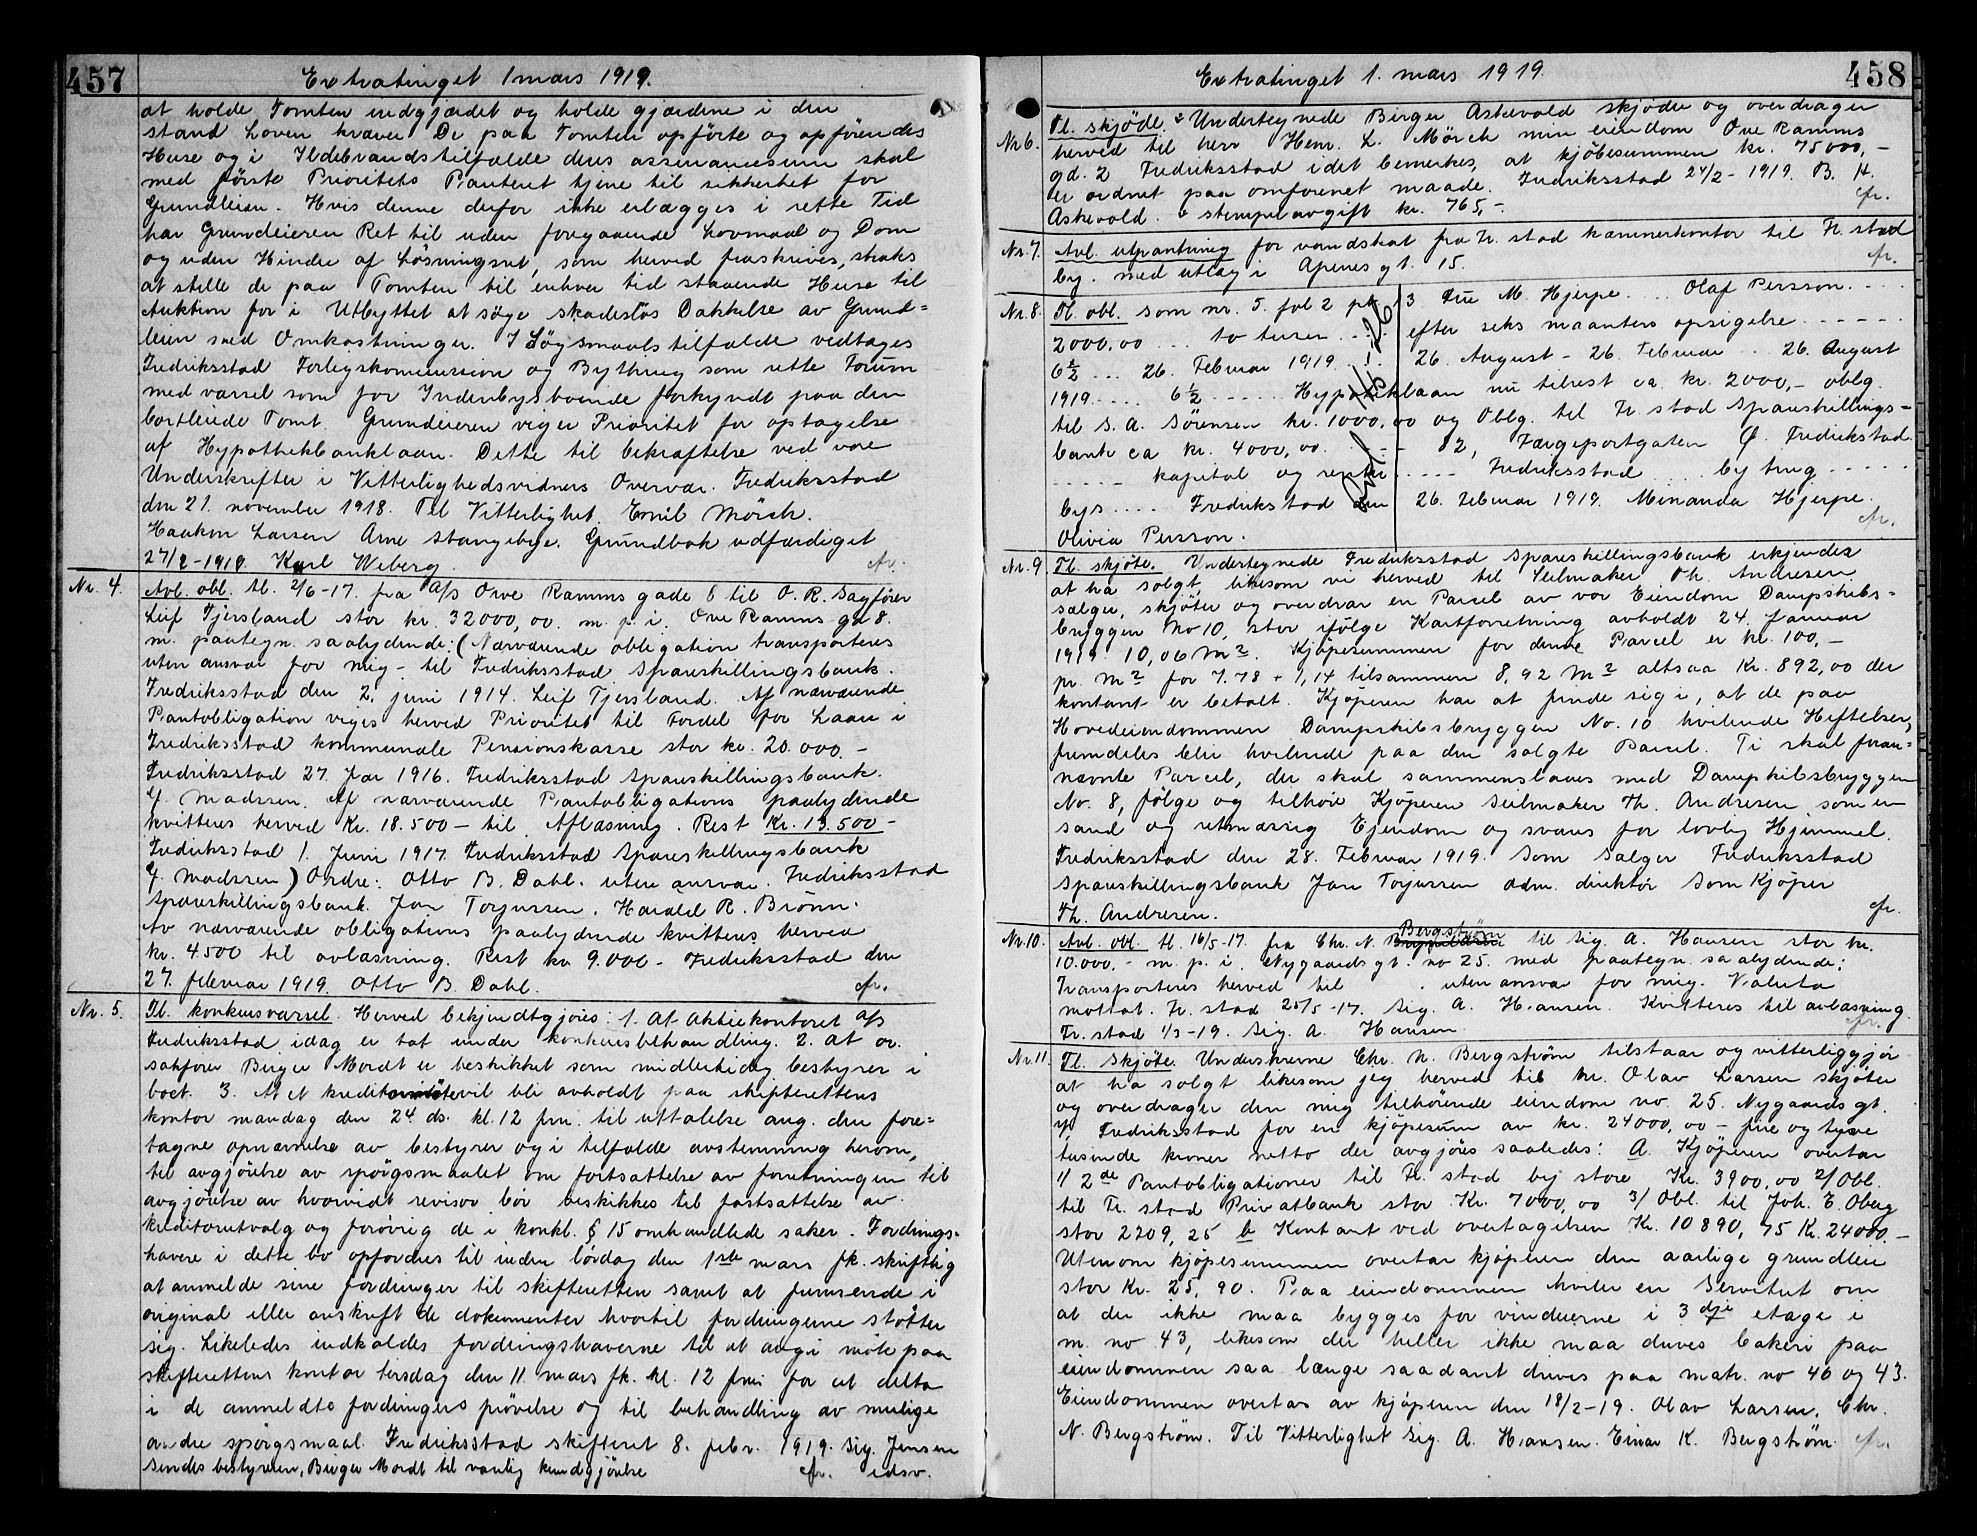 457
Extratinget 1 mars 1919.
at holde Tomten indgjærdet og holde gjærdene i den
stand Loven kræver De paa Tomten opførte og opførendes
Huse og i Ildebrandstilfælde deres assurancesum skal
med første Prioritets Panteret tjene til sikkerhet for
Grundleien. Hvis denne derfor ikke erlægges i rette Tid
har Grundeieren Ret til uden foregaaende Lovmaal og Dom
og uden Hinder af Løsningsret, som herved fraskrives, straks
at stille de paa Tomten til enhver tid staaende Huse til
Auktion for i Utbyttet at søge skadesløs Dækkelse av Grund=
leien med Omkostninger. I Søgsmaalstilfælde vedtages
Fredriksstad Forligskommission og Bything som rette Forum
med varsel som for Indenbysboende forkyndt paa den
bortleiede Tomt. Grundeieren viger Prioritet for optagelse
af Hypothekbanklaan. Dette til bekræftelse ved vore
Underskrifter i Vitterlighedsvidners Overvær. Fredriksstad
den 21. november 1918. Til Vitterlighet. Emil Mørch.
Haakon Larsen Arne Stangebye. Grundbok udfærdiget
27/2-1919. Karl Weberg.
Nr. 4. Avl. obl. tl. 2/6-17. fra A/S Ove Ramms gade 6 til O. R. Sagfører
Leif Tjersland stor kr. 32000,00. m. p. i. Ove Ramms gt 8.
m. paategn. saalydende: (Nærværende obligation transporteres
uten ansvar for mig - til Fredriksstad Spareskillingsbank.
Fredriksstad den 2. juni 1914. Leif Tjersland. Af nærværende
Pantobligation viges herved Prioritet til Fordel for Laan i
Fredriksstad kommunale Pensionskasse stor kr. 20.000.-
Fredriksstad 27. Jan 1916. Fredriksstad Spareskillingsbank.
G. Madssen. Af nærværende Pantobligations paalydende
kvitteres herved Kr. 18.500 - til Aflæsning. Rest Kr. 13.500-
Fredriksstad 1. Juni 1917. Fredriksstad Spareskillingsbank
G. Madssen) Ordre: Otto B. Dahl. uten ansvar. Fredriksstad
Spareskillingsbank. Jan Torjussen. Harald R. Brönn.
Av nærværende obligations paalydende kvitteres herved
kr. 4500 til avlæsning. Rest kr 9.000 - Fredriksstad den
27. februar 1919. Otto B. Dahl. cfr.
Nr. 5. Tl. konkursvarsel. Herved bekjendtgjøres: 1. At Aktiekontoret A/S
Fredriksstad idag er tat under konkursbehandling. 2. at or.
sakfører Birger Mordt er beskikket som midlertidig bestyrer i
boet. 3. At et kreditormøte vil bli avholdt paa skifterettens
kontor mandag den 24. ds. kl. 12 fm. til uttalelse ang. den fore=
tagne opnævnelse av bestyrer og i tilfælde avstemning herom,
til avgjørelse av spørgsmaalet om fortsættelse av forretningen til
avgjørelse av hvorvidt revisor bør beskikkes til fastsættelse av
kreditorutvalg og forøvrig de i konkl. § 15 omhandlede saker. Fordrings=
havere i dette bo opfordres til inden lørdag den 1ste mars fk. skriftlig
at anmelde sine fordringer til skifteretten samt at fremsende i
original eller avskrift de dokumenter hvortil fordringerne støtter
sig. Likeledes indkaldes fordringshaverne til at avgi møte paa
skifterettens kontor tirsdag den 11. mars fk. kl. 12 fmi for at delta
i de anmeldte fordringers prøvelse og til behandling av mulige
andre spørgsmaal. Fredriksstad skifteret 8. febr. 1919. Sig. Jensen
Sendes bestyreren, Birger Mordt til vanlig kundgjørelse cfr. edsv.
458
Extratinget 1. mars 1919.
Nr 6. Tl. skjøde. Undertegnede Birger Askevold skjøder og overdrager
herved til herr Henr. L. Mørch min eiendom Ove Ramms
gd. 2 Fredriksstad idet bemerkes, at kjøbesummen kr. 75000,-
er ordnet paa omforenet maade. Fredriksstad 24/2-1919. B. H.
Askevold. stempelavgift kr. 765,-. cfr.
Nr. 7. Avl. utpantning for vandskat fra Fr.stad kæmnerkontor til Fr.stad
by. med utlæg i Apenes gt. 15. cfr.
Nr. 8. Tl. obl. som nr. 5. fol 2 pkt 3 Fru M. Hjerpe. ... Olaf Persson. ...
2000,00 ... to tusen ... efter seks maaneders opsigelse ......
6½ ... 26. Februar 1919 ... 26. August - 26. Februar ... 26. August
1919 .... 6½ ..... Hypoteklaan nu tilrest ca. kr. 2000,- oblg.
til S. A. Sørensen kr. 1000,00 og Oblg. til Fr.stad Spareskillings=
bank ca kr. 4000,00. ... 82, Færgeportgaten Ø. Fredrikstad.
..... kapital og renter .... Fredriksstad ... by ting .....
bys .... Fredrikstad den 26. Februar 1919. Menanda Hjerpe.
Olivia Persson. cfr.
Nr. 9 Tl. skjøte. Undertegnede Fredriksstad Spareskillingsbank erkjender
at ha solgt likesom vi herved til Seilmaker Th. Andresen
sælger, skjøter og overdrar en Parcel av vor Eiendom Dampskibs=
bryggen No 10, stor ifølge Kartforretning avholdt 24. Januar
1919. 10,06 M². Kjøpesummen for denne Parcel er kr. 100,-
pr. M² for 7.78 + 1,14 tilsammen 8,92 M² altsaa Kr. 892,00 der
kontant er betalt. Kjøperen har at finde sig i, at de paa
Hovedeiendommen Dampskibsbryggen No. 10 hvilende Heftelser,
fremdeles blir hvilende paa den solgte Parcel. Ti skal foran=
nævnte Parcel, der skal sammenslaaes med Dampskibsbryggen
No. 8, følge og tilhøre Kjøperen Seilmaker Th. Andresen som en
sand og retmæssig Ejendom og svares for lovlig Hjemmel.
Fredriksstad den 28. Februar 1919. Som Sælger Fredriksstad
Spareskillingsbank Jan Torjussen adm. direktør Som Kjøper
Th. Andresen. cfr.
Nr. 10. Avl. obl. tl. 16/5-17. fra Chr. N. Bergstrøm til Sig. A. Hansen stor kr.
10.000,- m. p. i. Nygaards gt. no 25. med paategn. saalydende:
Transporteres herved til . uten ansvar for mig. Valuta
mottat. Fr.stad 25/5-17. Sig. A. Hansen. Kvitteres til avlæsning.
Fr.stad 1/3-19. Sig. A. Hansen. cfr.
Nr. 11. Tl. Skjøte. Underskrevne Chr. N. Bergstrøm tilstaar og vitterliggjør
at ha solgt likesom jeg herved til hr. Olav Larsen skjøter
og overdrager den mig tilhørende eiendom no. 25. Nygaards gt.
V. Fredriksstad for en kjøpesum av kr. 24000,00 - fire og tyve
tusinde kroner netto der avgjøres saaledes: A. Kjøperen overtar
1/ 2de Pantobligationer til Fr.stad by store Kr. 3900,00 2/ Obl.
til Fr.stad Privatbank stor Kr. 7000,00 3/ Obl. til Joh. E. Oberg
stor 2209,25 b Kontant ved overtagelsen Kr. 10890,75 Kr. 24000.-
Utenom kjøpesummen overtar kjøperen den aarlige grundleie
stor Kr. 25,90. Paa eiendommen hviler en Servitut om
at der ikke maa bygges for vinduerne i 3dje etage i
m. no 43, likesom der heller ikke maa drives bakeri paa
eiendommen saa længe saadant drives paa matr. no 46 og 43.
Eiendommen overtas av kjøperen den 18/2-19. Olav Larsen. Chr.
N. Bergstrøm. Til Vitterlighet Sig. A. Hansen. Einar K. Bergstrøm. cfr.